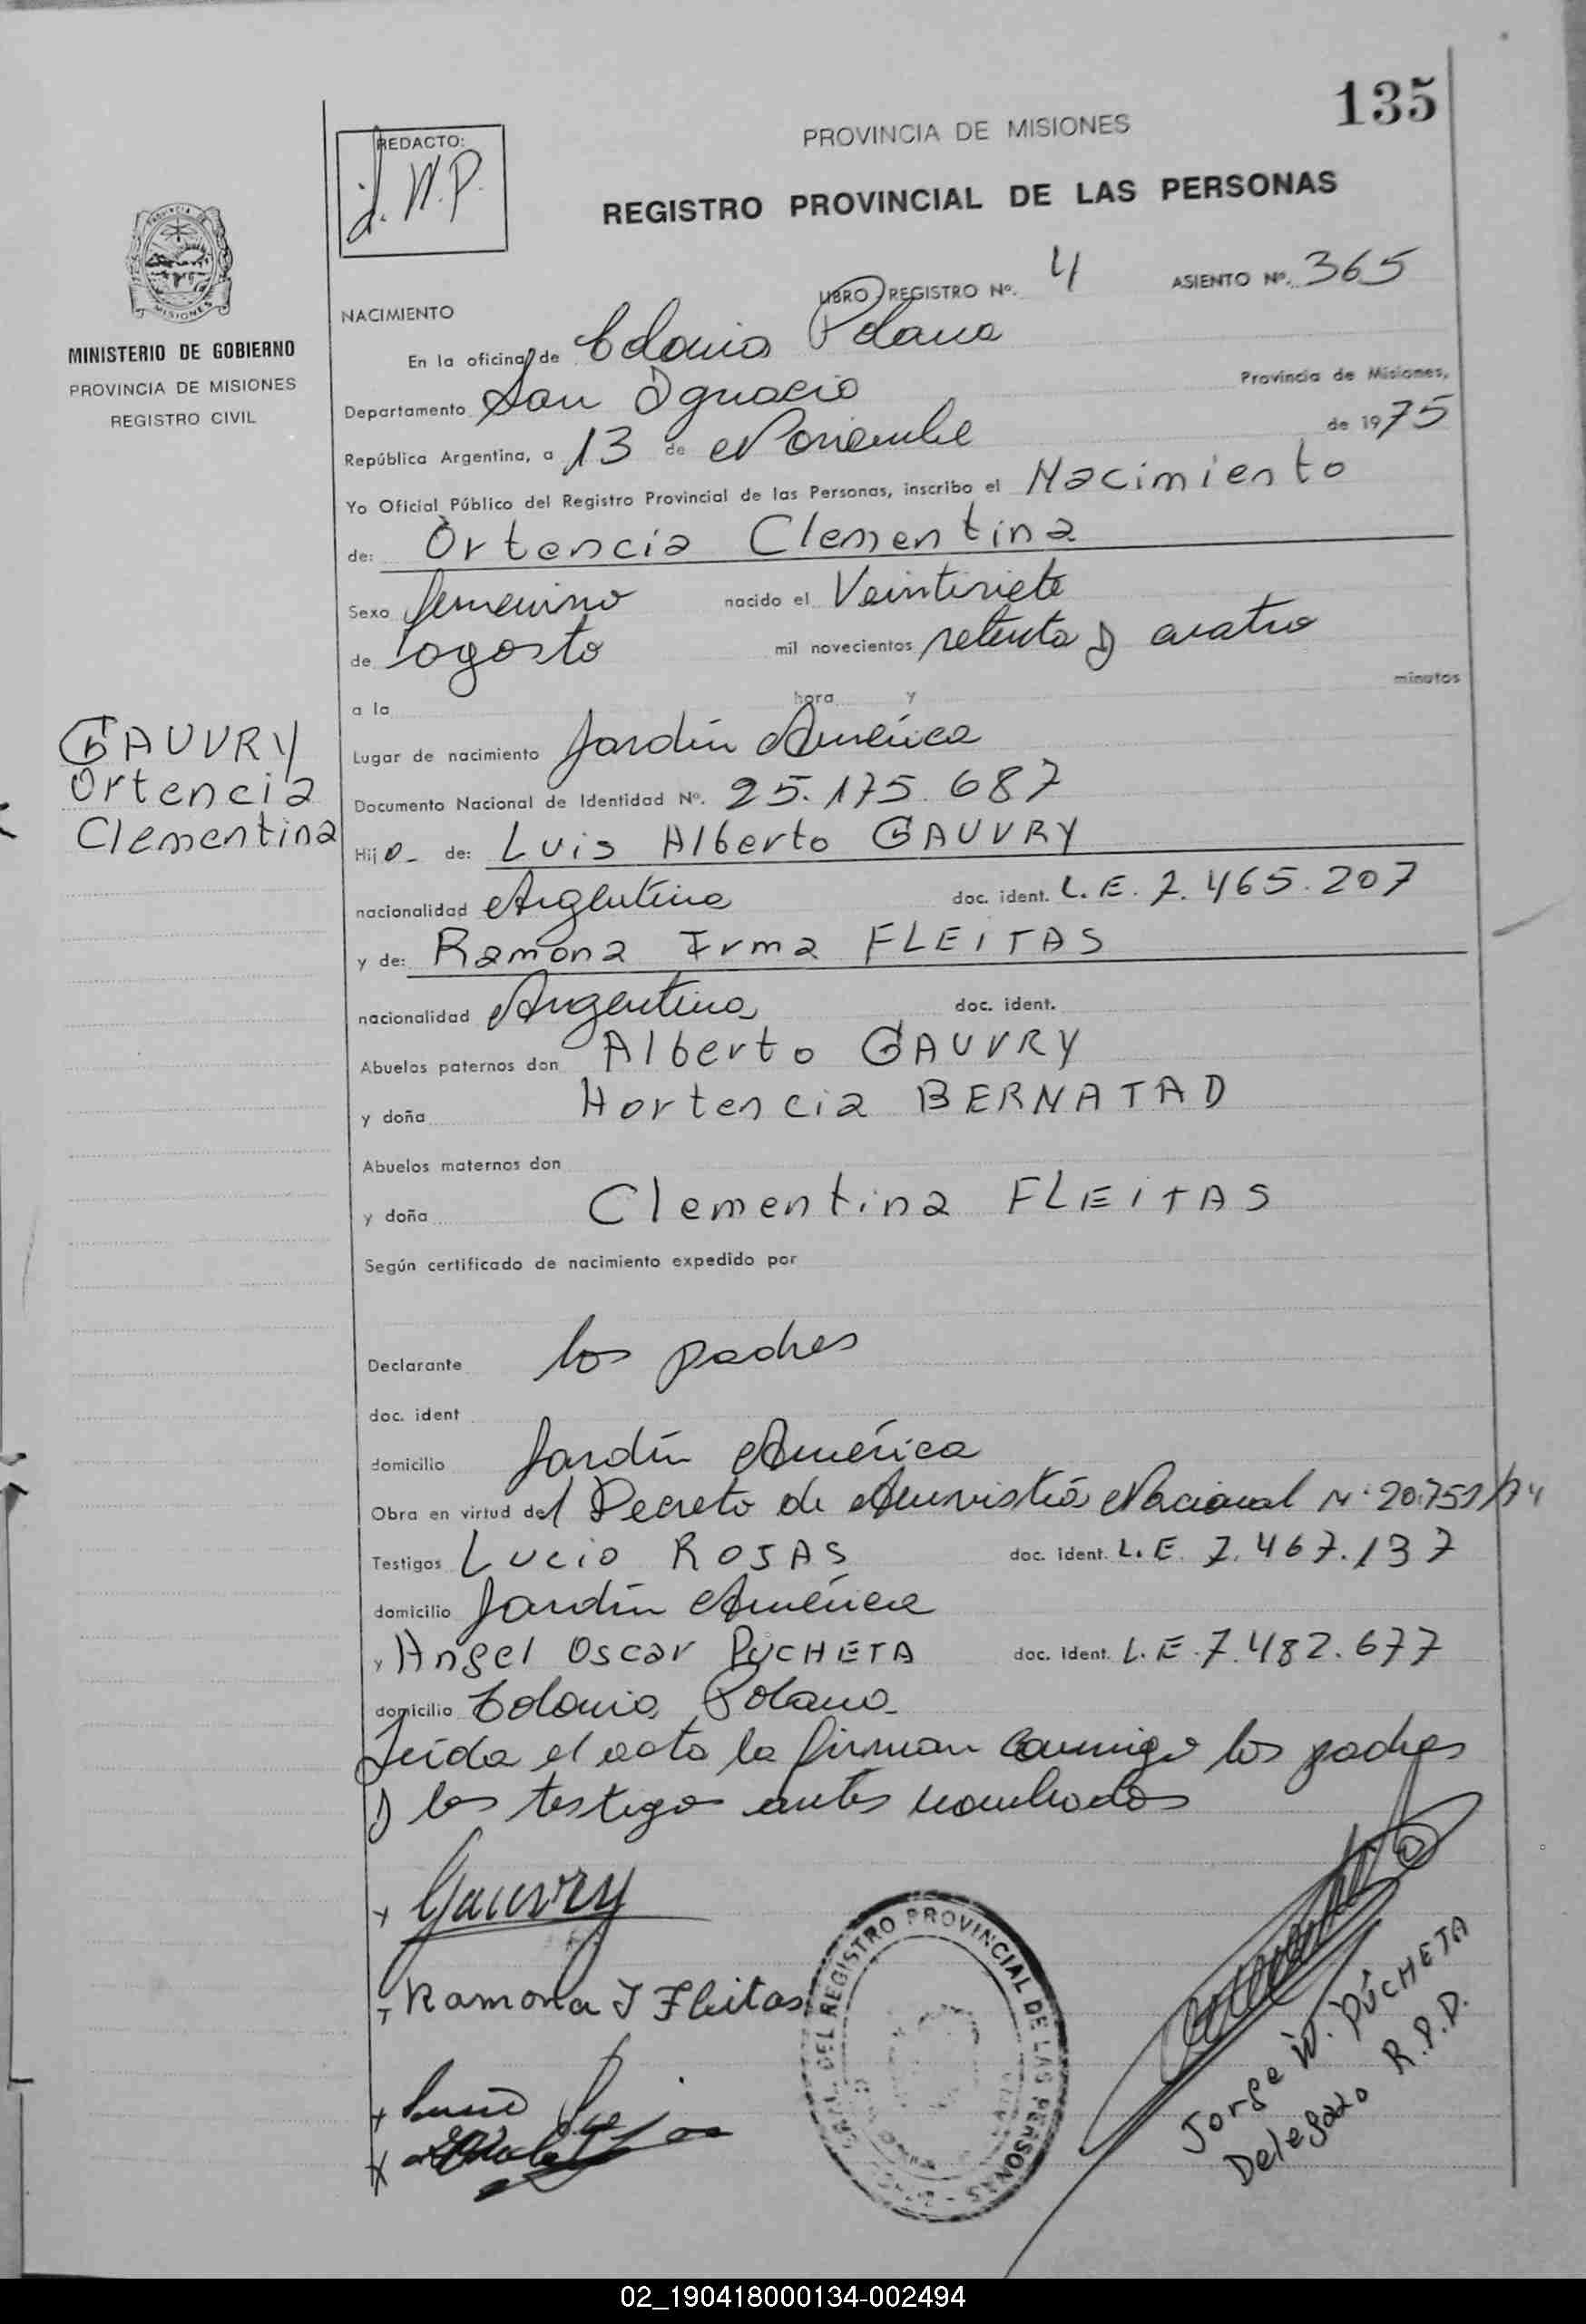 135
REDACTO:
J. W. P.
PROVINCIA DE MISIONES
REGISTRO PROVINCIAL DE LAS PERSONAS
MISIONES
MINISTERIO DE GOBIERNO
PROVINCIA DE MISIONES
REGISTRO CIVIL
LIBRO REGISTRO Nº. 4 ASIENTO Nº. 365
NACIMIENTO
En la oficina de Colonia Polana
Departamento San Ignacio Provincia de Misiones,
República Argentina, a 13 de Noviembre de 1975
Yo Oficial Público del Registro Provincial de las Personas, inscribo el Nacimiento
de: Ortencia Clementina
Sexo femenino nacido el Veintisiete
de agosto mil novecientos setenta y cuatro
a la hora y minutos
Lugar de nacimiento Jardín América
GAUVRY
Ortencia
Clementina
Documento Nacional de Identidad Nº. 25.175.687
Hija de: Luis Alberto GAUVRY
nacionalidad Argentina doc. ident. L.E. 7.465.207
y de: Ramona Irma FLEITAS
nacionalidad Argentina doc. ident.
Abuelos paternos don Alberto GAUVRY
y doña Hortencia BERNATAD
Abuelos maternos don
y doña Clementina FLEITAS
Según certificado de nacimiento expedido por
Declarante los padres
doc. ident
domicilio Jardín América
Obra en virtud del Decreto de Amnistía Nacional Nº 20.751/74
Testigos Lucio ROJAS doc. ident. L.E. 7.467.137
domicilio Jardín América
y Angel Oscar PUCHETA doc. ident. L.E. 7.482.677
domicilio Colonia Polana
Leída el acta la firman conmigo los padres
y los testigos antes nombrados
x Gauvry
x Ramona I Fleitas
x Lucio Rojas
x
DEL REGISTRO PROVINCIAL DE LAS PERSONAS
Jorge W. PUCHETA
Delegado R.P.P.
02_190418000134-002494